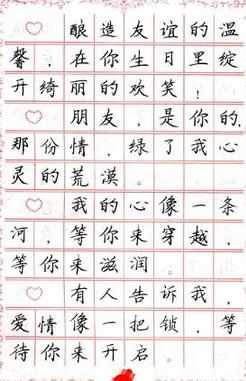 ♡ 酿造友谊的温
馨，在你生日里绽
开绮丽的欢笑！
♡ 朋友，是你的，
那份情，绿了我心
灵的荒漠。
♡ 我的心像一条
河，等你来穿越，
等你来滋润。
♡ 有人告诉我，
爱情像一把锁，等
待你来开启。